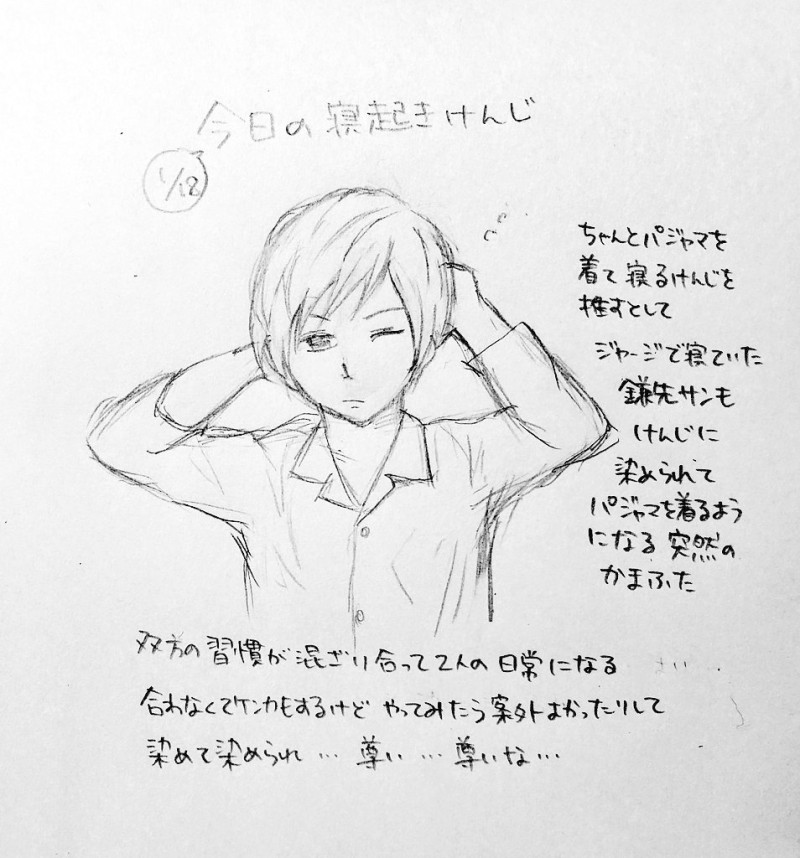 今日の寝起きけんじ
1/12
ちゃんとパジャマを
着て寝るけんじを
推すとして
ジャージで寝ていた
鎌先サンも
けんじに
染められて
パジャマを着るよう
になる 突然の
かまふた
双方の習慣が混ざり合って2人の日常になる
合わなくてケンカもするけど やってみたら案外よかったりして
染めて染められ… 尊い… 尊いな…